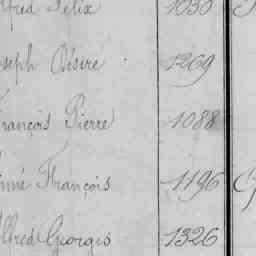 lfred Félix 1030
oseph Désiré 1269
rançois Pierre 1088
imé François 1196
lfred Georges 1326